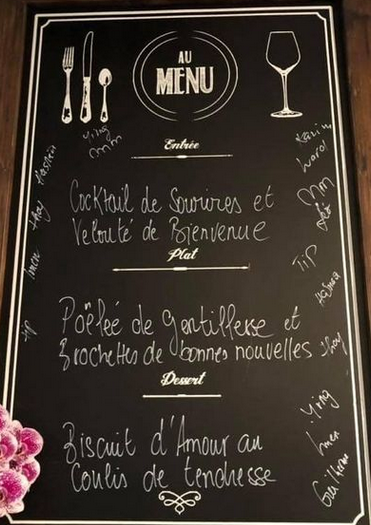 AU
MENU
Entrée
Cocktail de Sourires et
Velouté de Bienvenue
Plat
Poêlée de gentillesse et
Brochettes de bonnes nouvelles
Dessert
Biscuit d'Amour au
Coulis de tendresse
Ying
Thay
Imen
Karim
TiP
Thay
Ying
Imen